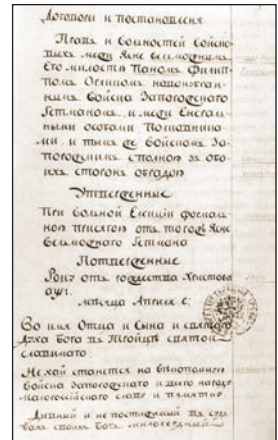 Договоры и постановленя
Правъ и волностей войско-
выхъ межи Ясне вельможнымъ
Его милости Паномъ Филип-
помъ Орликомъ новоизбран-
нымъ Войска Запорожского
Гетманомъ, и межи Енераль-
ными особами Полковника-
ми, и тымъ же Войскомъ За-
порожскимъ сполною зъ обо-
ихъ сторонъ обрадою
Утверженные
При волной Елекціи формаль-
ною присягою отъ того жъ Ясне
вельможного Гетмана
Потверженные
Року отъ рождества Христова
аѱі.
мѣсяца Априля є:
Во имя Отца и Сына и святаго
Духа Бога въ Тройцѣ святой
славимаго
Не хай станется на вѣкопомную
Войска Запорожского и всего народу
Малоросійского славу и памятку
Дивный и непостижимый въ суд-
бахъ своихъ Богъ милосердный